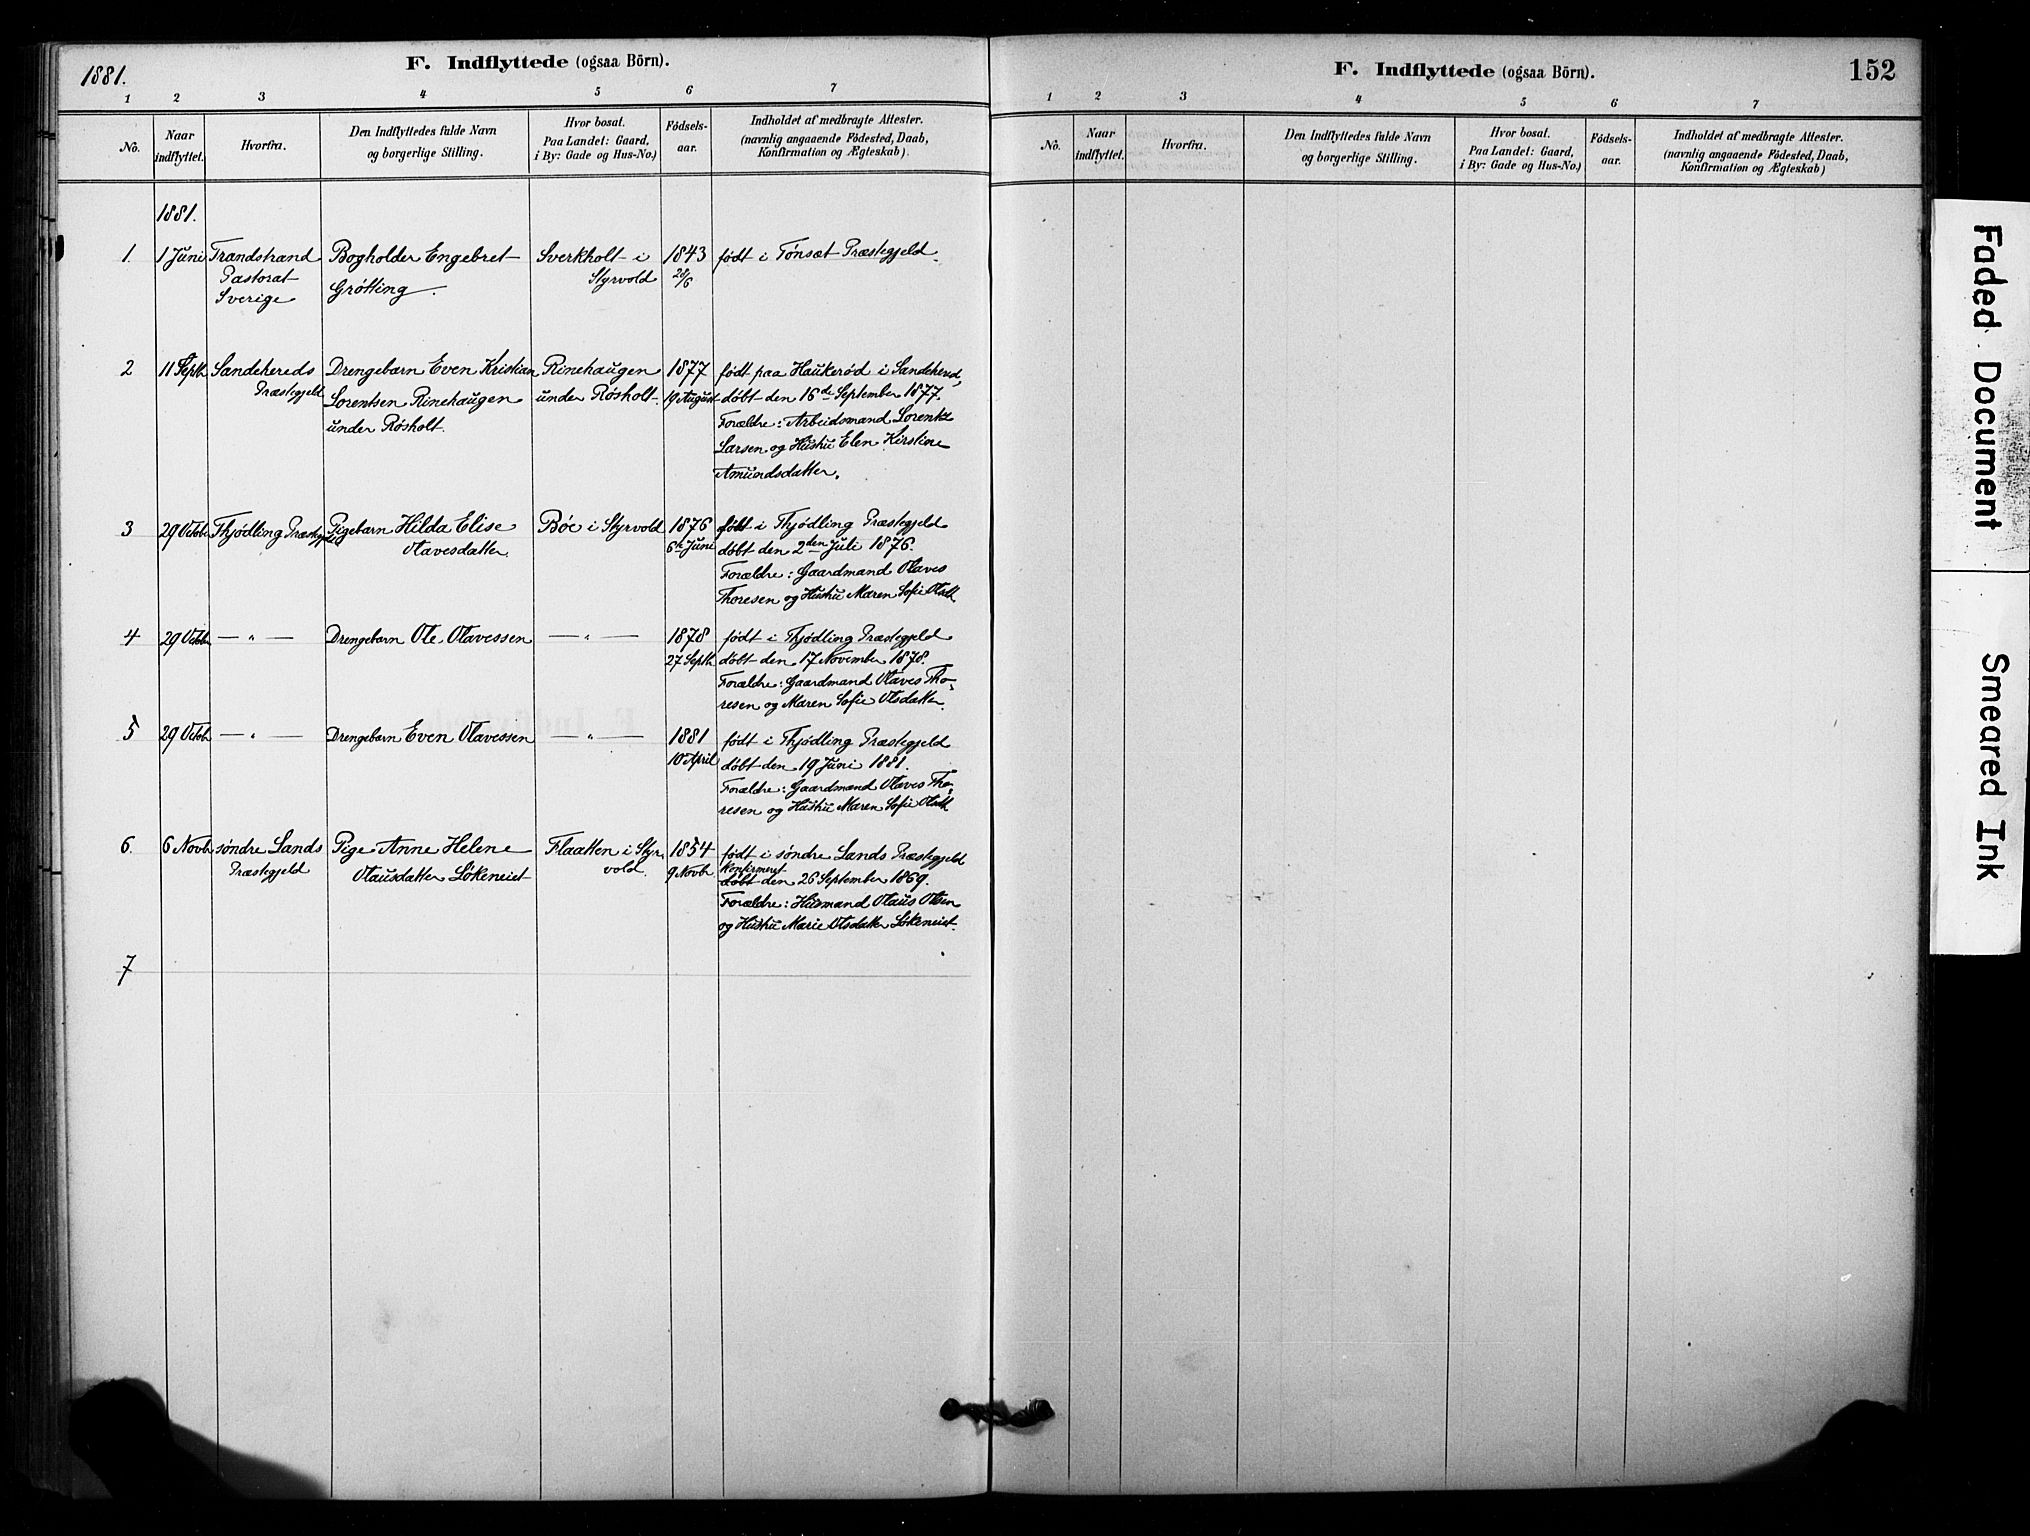 1881.
F. Indflyttede (ogsaa Börn).
1 2 3 4 5 6 7
No.
Naar
indflyttet.
Hvorfra.
Den Indflyttedes fulde Navn
og borgerlige Stilling.
Hvor bosat.
Paa Landet: Gaard,
i By: Gade og Hus-No.)
Födsels-
aar.
Indholdet af medbragte Attester.
(navnlig angaaende Födested, Daab,
Konfirmation og Ægteskab)
1881.
1. 1 Juni Trandstrand Bogholder Engebret Sverkholt i 1843 født i Tønset Præstegjeld.
Pastorat Grøtting. Styrvold 28/6
Sverige
2 11 Septb Sandehereds Drengebarn Even Kristian Rinehaugen 1877 født paa Haukerød i Sandeherred,
Præstegjeld Lorentsen Rinehaugen under Røsholt. 19 August døbt den 16de September 1877.
under Røsholt. Forældre: Arbeidsmand Lorentz
Larsen og Hustru Elen Kirstine
Amundsdatter.
3 29 Octobr Thjødling Præstegjeld Pigebarn Hilda Elise Bøe i Styrvold 1876 født i Thjødling Præstegjeld
Olavesdatter. 6te Juni døbt den 2den Juli 1876.
Forældre: Gaardmand Olaves
Thoresen og Hustru Maren Sofie Olsdt.
4 29 Octobr — " — Drengebarn Ole Olavessen — " — 1878 født i Thjødling Præstegjeld
27 Septb døbt den 17 November 1878.
Forældre: Gaardmand Olaves Tho-
resen og Maren Sofie Olsdatter.
5 29 Octobr — " — Drengebarn Even Olavessen — " — 1881 født i Thjødling Præstegjeld
10 April døbt den 19 Juni 1881.
Forældre: Gaardmand Olaves Tho-
resen og Hustru Maren Sofie Olsdt
6. 6 Novbr søndre Lands Pige Anne Helene Flaatten i Styr- 1854 født i søndre Lands Præstegjeld
Præstegjeld Olausdatter Løkeneiet vold. 9 Novbr Konfirmeret
døbt den 26 September 1869.
Forældre: Husmand Olaus Olsen
og Hustru Marie Olsdatter Løkeneiet.
7
F. Indflyttede (ogsaa Börn).
152
1 2 3 4 5 6 7
No.
Naar
indflyttet.
Hvorfra.
Den Indflyttedes fulde Navn
og borgerlige Stilling.
Hvor bosat.
Paa Landet: Gaard,
i By: Gade og Hus-No.)
Födsels-
aar.
Indholdet af medbragte Attester.
(navnlig angaaende Födested, Daab,
Konfirmation og Ægteskab)
Faded Document
Smeared Ink